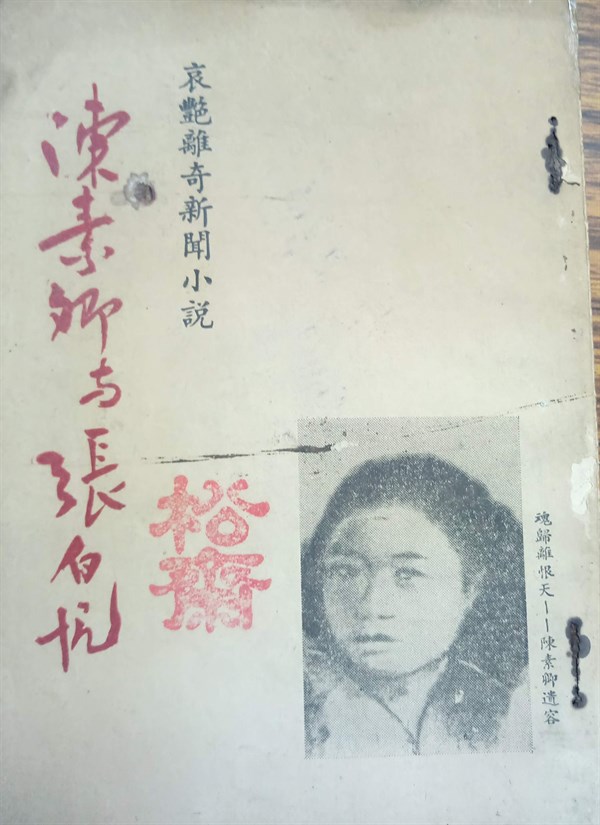 哀艷離奇新聞小説
陳素卿与張白帆
松齋
魂歸離恨天——陳素卿遺容